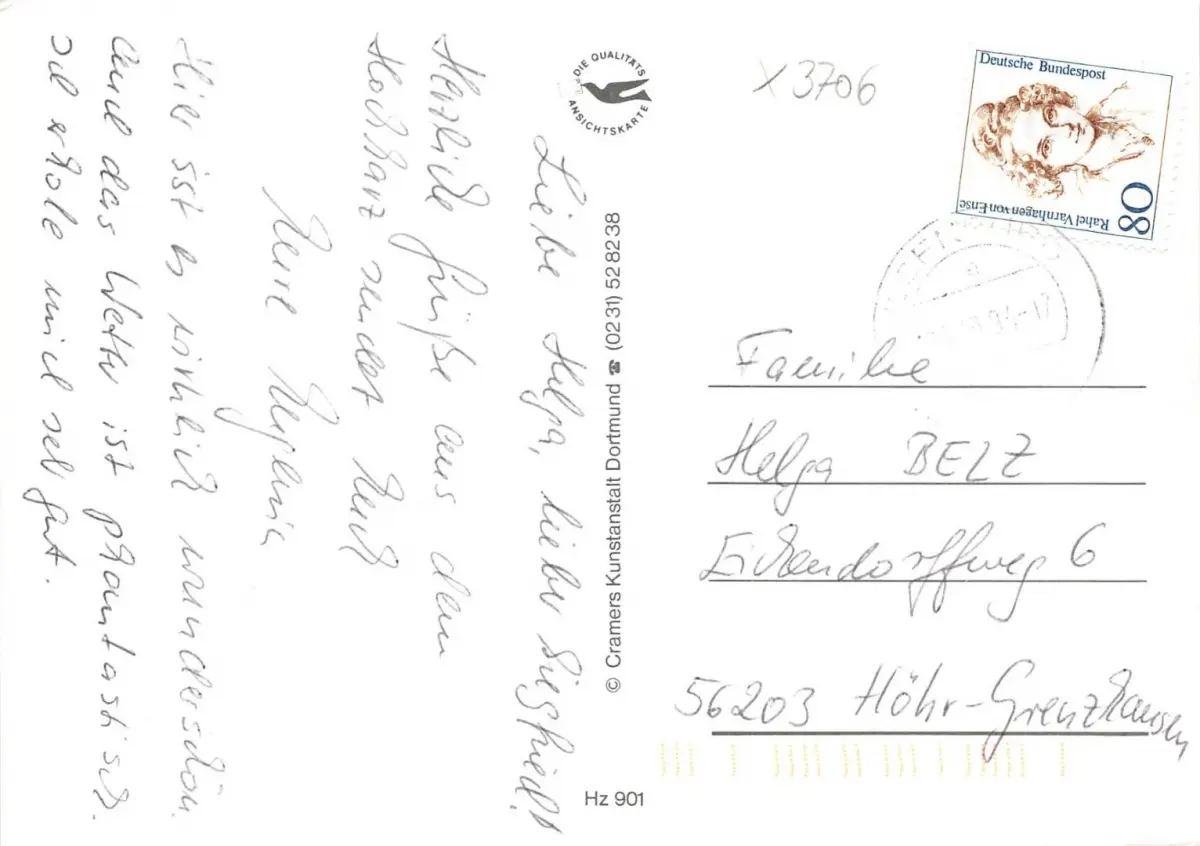 Liebe Helga, lieber Siegfried!
Herzliche Grüße aus dem
Hochharz sendet Euch
Eure Eugenia
Hier ist es wirklich wunderschön.
Und das Wetter ist phantastisch.
Ich erhole mich sehr gut.
DIE QUALITÄTS
ANSICHTSKARTE
© Cramers Kunstanstalt Dortmund ☎ (0231) 528238
Hz 901
X3706
Deutsche Bundespost
Rahel Varnhagen von Ense
80
Familie
Helga BELZ
Eichendorffweg 6
56203 Höhr-Grenzhausen